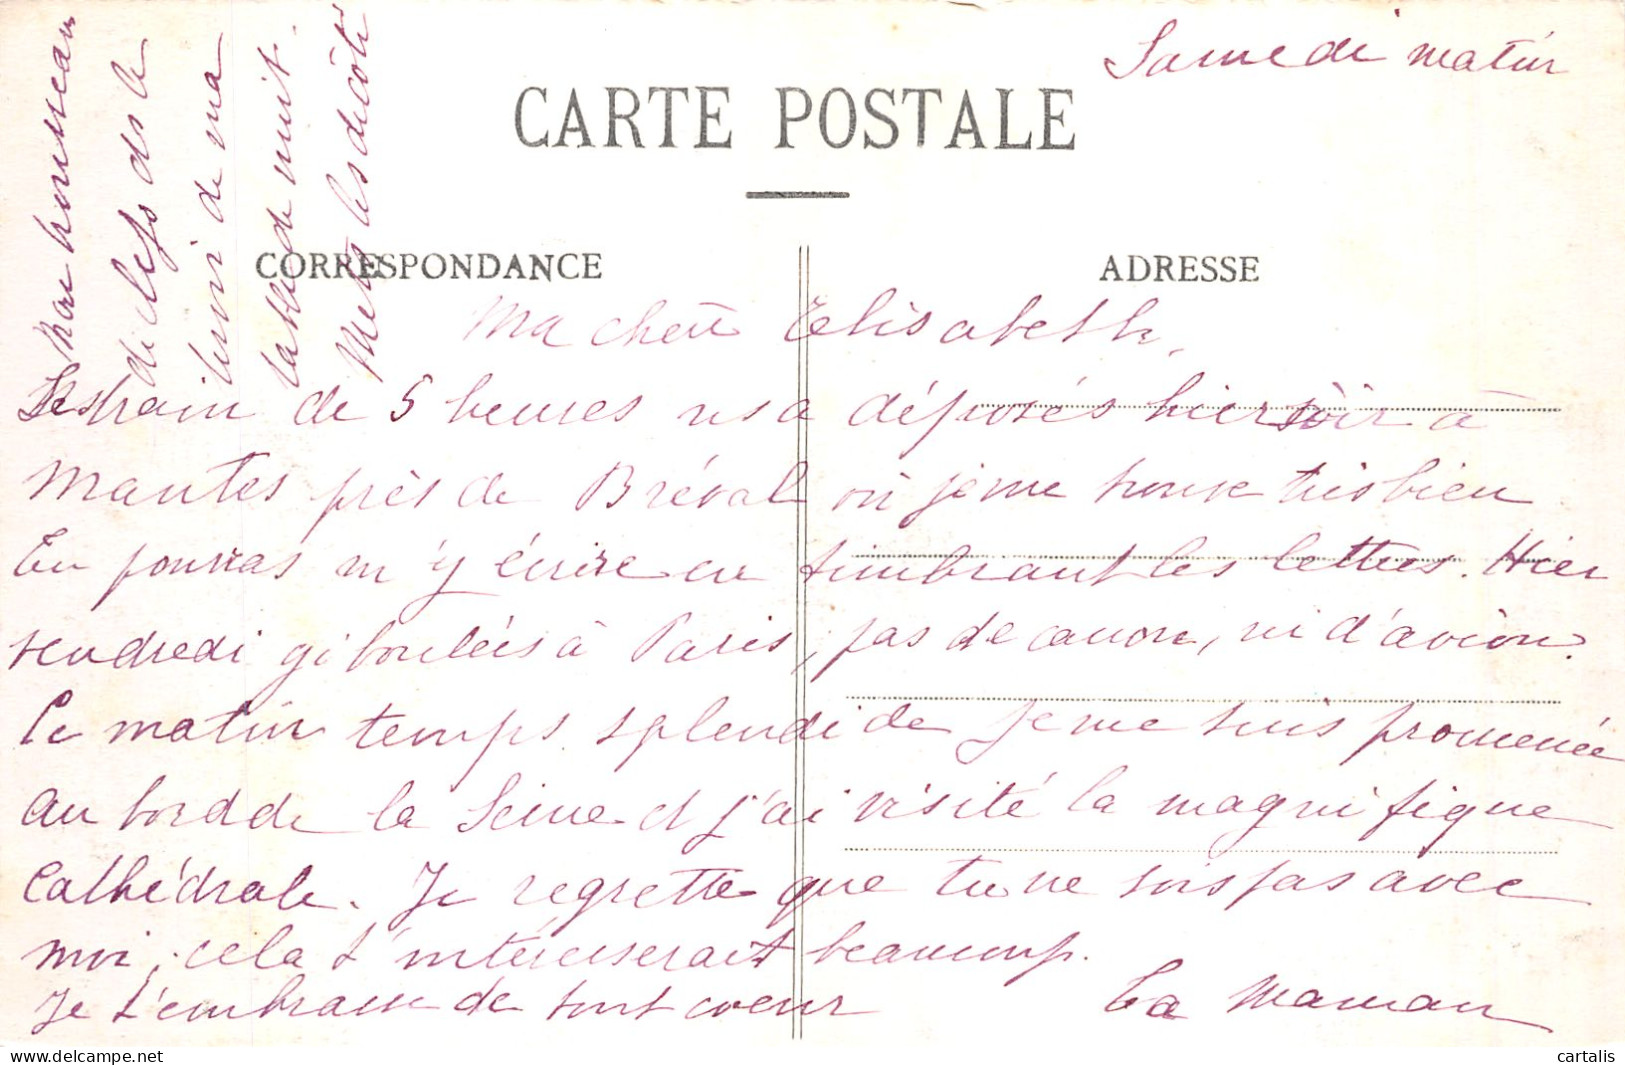 Samedi matin
CARTE POSTALE
CORRESPONDANCE
ADRESSE
Ma chère Elisabeth,
train de 5 heures ns a déposés hier soir à
Mantes près de Bréval où je me trouve très bien
Tu pourras m'y écrire en timbrant les lettres. Hier
vendredi giboulées à Paris, pas de canon, ni d'avion.
Ce matin temps splendide je me suis promenée
au bord de la Seine et j'ai visité la magnifique
Cathédrale. Je regrette que tu ne sois pas avec
moi, cela t'intéresserait beaucoup.
Je t'embrasse de tout coeur
Ta Maman
Mon trousseau
de clefs ds le
tiroir de ma
table de nuit.
Mets les de côté
delcampe.net
cartalis